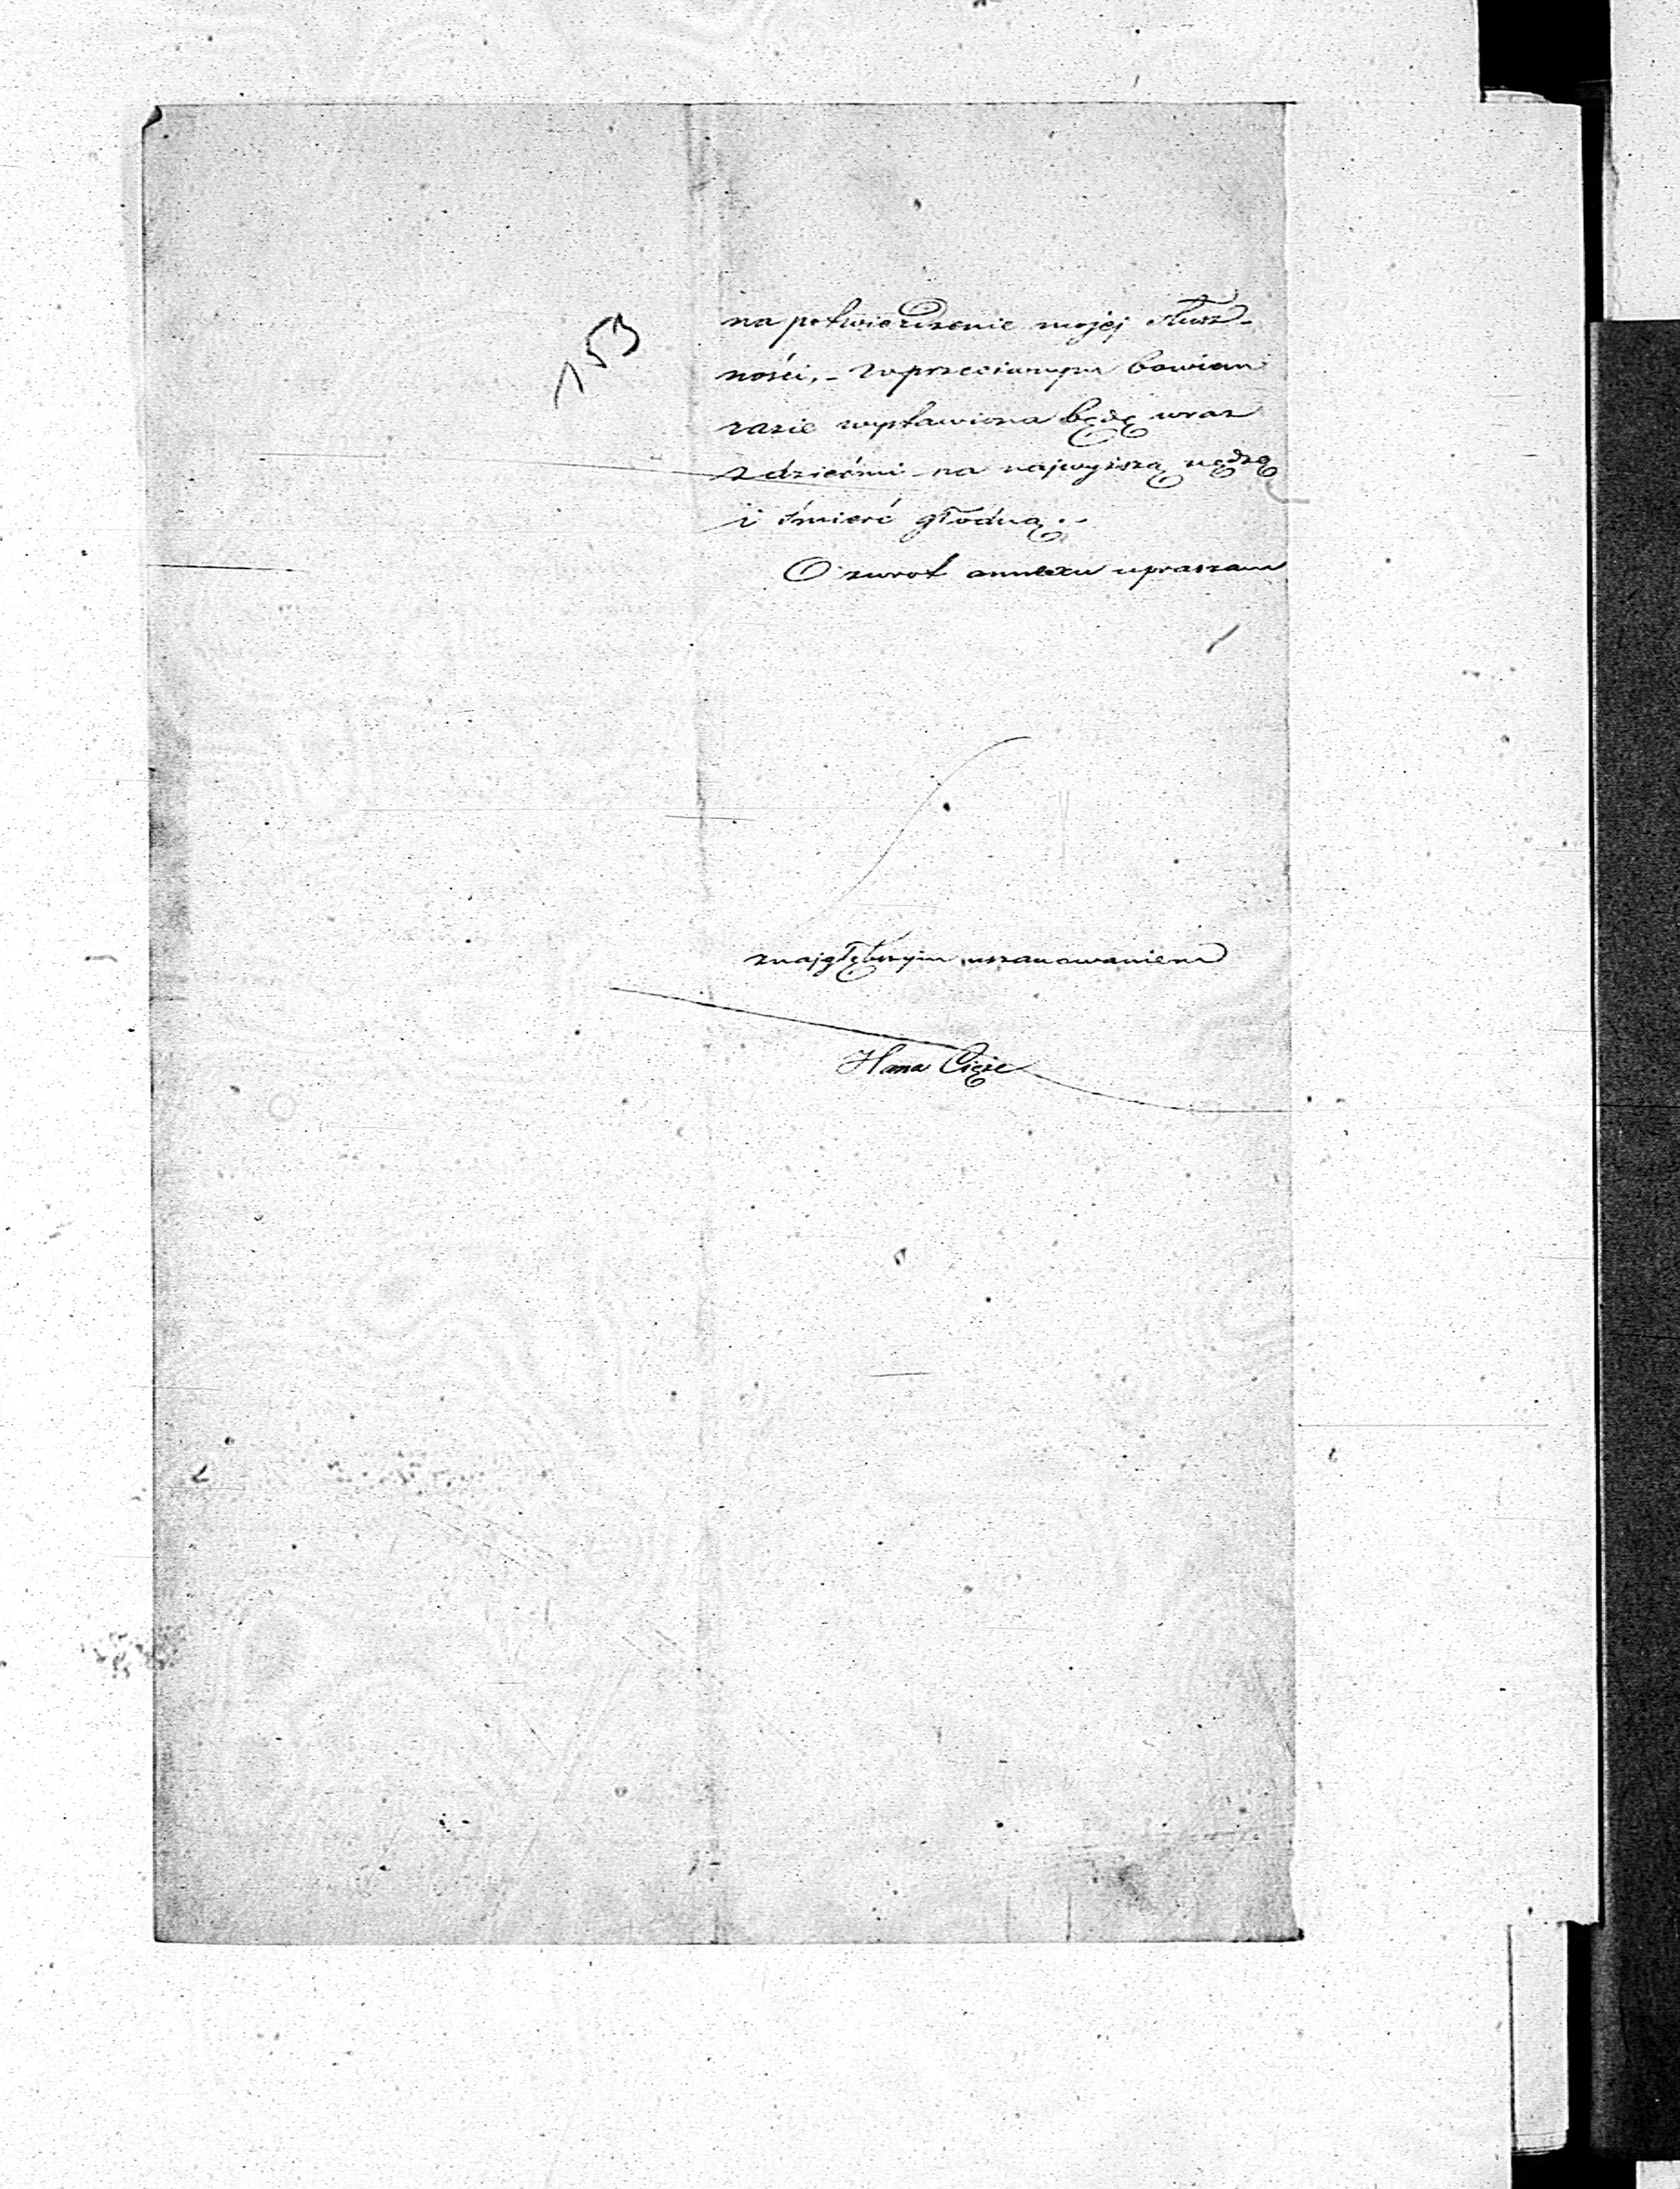 153
na potwierdzenie mojéj słusz-
ności, - wprzeciwnym bowiem
razie wystawiona będę wraz
z dziećmi na najwyższą nędzę
i śmierć głodną. -
O zwrot annexu upraszam
znajgłębszym uszanowaniem
Hana Cięże